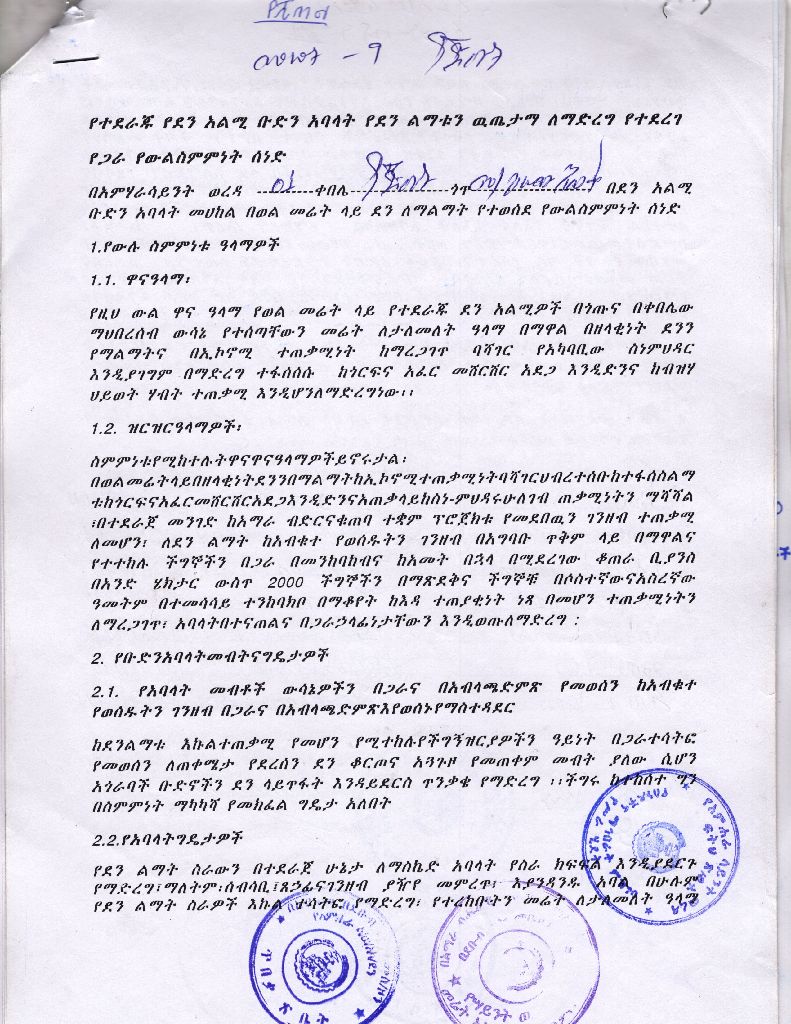 የተደራጁ የደን አልሚ ቡድን አባላት የደን ልማቱን ዉጤታማ ለማድረግ የተደረገ
የጋራ የውልስምምነት ሰነድ
በአምሃራሳይንት ወረዳ ቀበሌ ጎጥ በደን አልሚ
ቡድን አባላት መሀከል በወል መሬት ላይ ደን ለማልማት የተወሰደ የውልስምምነት ሰነድ
1.የውሉ ስምምነቱ ዓላማዎች
1.1. ዋናዓላማ፡
የዚህ ውል ዋና ዓላማ የወል መሬት ላይ የተደራጁ ደን አልሚዎች በጎጡና በቀበሌው
ማህበረሰብ ውሳኔ የተሰጣቸውን መሬት ለታለመለት ዓላማ በማዋል በዘላቂነት ደንን
የማልማትና በኢኮኖሚ ተጠቃሚነት ከማረጋገጥ ባሻገር የአካባቢው ስነምህዳር
እንዲያገግም በማድረግ ተፋሰሰሱ ከጎርፍና አፈር መሸርሸር አደጋ እንዲድንና ከብዝሃ
ህይወት ሃብት ተጠቃሚ እንዲሆንለማድረግነው፡፡
1.2. ዝርዝርዓላማዎች፡
ስምምነቱየሚከተሉትዋናዋናዓላማዎችይኖሩታል፡
በወልመሬትላይበዘላቂነትደንንበማልማትከኢኮኖሚተጠቃሚነትባሻገርህብረተሰቡከተፋሰስልማ
ቱከጎርፍናአፈርመሸርሸርአደጋእንዲድንናአጠቃላይከስነ-ምህዳሩሁለገብ ጠቃሚነትን ማሻሻል
፣በተደራጀ መንገድ ከአማራ ብድርናቁጠባ ተቋም ፕሮጀክቱ የመደበዉን ገንዘብ ተጠቃሚ
ለመሆን፣ ለደን ልማት ከአብቁተ የወሰዱትን ገንዘብ በአግባቡ ጥቅም ላይ በማዋልና
የተተከሉ ችግኞችን በጋራ በመንከባከብና ከአመት በኋላ በሚደረገው ቆጠራ ቢያንስ
በአንድ ሄክታር ውስጥ 2000 ችግኞችን በማጽደቅና ችግኞቹ በሶስተኛውናአስረኛው
ዓመትም በተመሳሳይ ተንከባክቦ በማቆየት ከእዳ ተጠያቂነት ነጻ በመሆን ተጠቃሚነትን
ለማረጋገጥ፣ አባላትበተናጠልና በጋራኃላፊነታቸውን እንዲወጡለማድረግ :
2. የቡድንአባላትመብትናግዴታዎች
2.1. የአባላት መብቶች ውሳኔዎችን በጋራና በአብላጫድምጽ የመወሰን ከአብቁተ
የወሰዱትን ገንዘብ በጋራና በአብላጫድምጽእየወሰኑየማስተዳደር
ከደንልማቱ እኩልተጠቃሚ የመሆን የሚተከሉየችግኝዝርያዎችን ዓይነት በጋራተሳትፎ
የመወሰን ለጠቀሜታ የደረሰን ደን ቆርጦና አጓጉዞ የመጠቀም መብት ያለው ሲሆን
አጎራባች ቡድኖችን ደን ላይጥፋት እንዳይደርስ ጥንቃቄ የማድረግ ፡፡ችግሩ ከተከሰተ ግን
በስምምነት ማካካሻ የመክፈል ግዴታ አለበት
2.2.የአባላትግዴታዎች
የደን ልማት ስራውን በተደራጀ ሁኔታ ለማስኬድ አባላት የስራ ክፍፍል እንዲያደርጉ
የማድረግ፣ማለትም፡ሰብሳቢ፣ጸኃፊናገንዘብ ያዥየ መምረጥ፣ እያንዳንዱ አባል በሁሉም
የደን ልማት ስራዎች እኩል ተሳትፎ የማድረግ፣ የተረከቡትን መሬት ለታለመለት ዓላማ